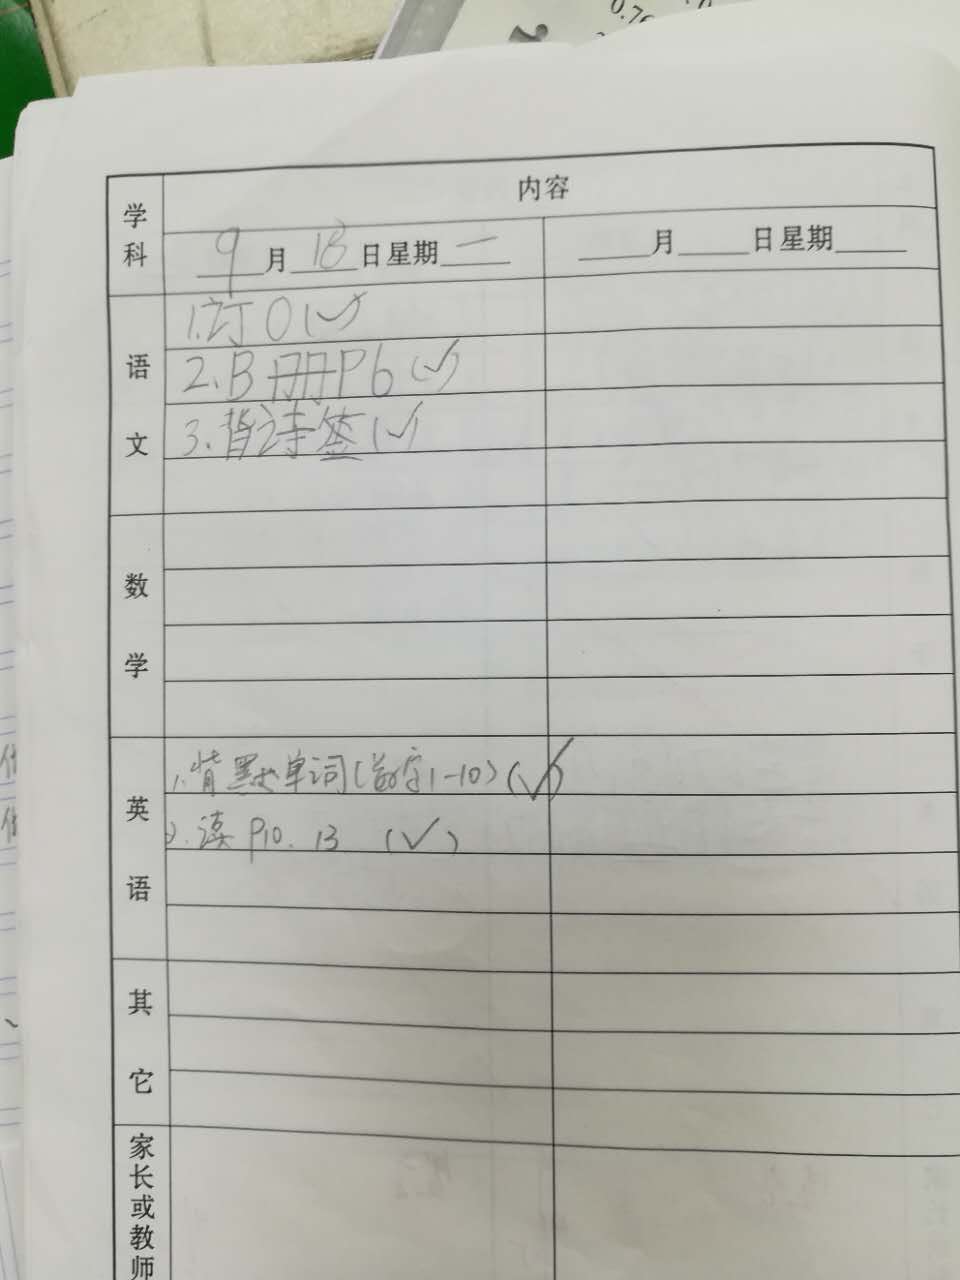 0.76
学科
内容
9月18日星期一
___月___日星期___
语文
1.订〇(✓)
2.B册P6(✓)
3.背诗签(✓)
数学
英语
1.背默单词(数字1-10)(✓)
2.读 P10. 13 (✓)
其它
家长或教师